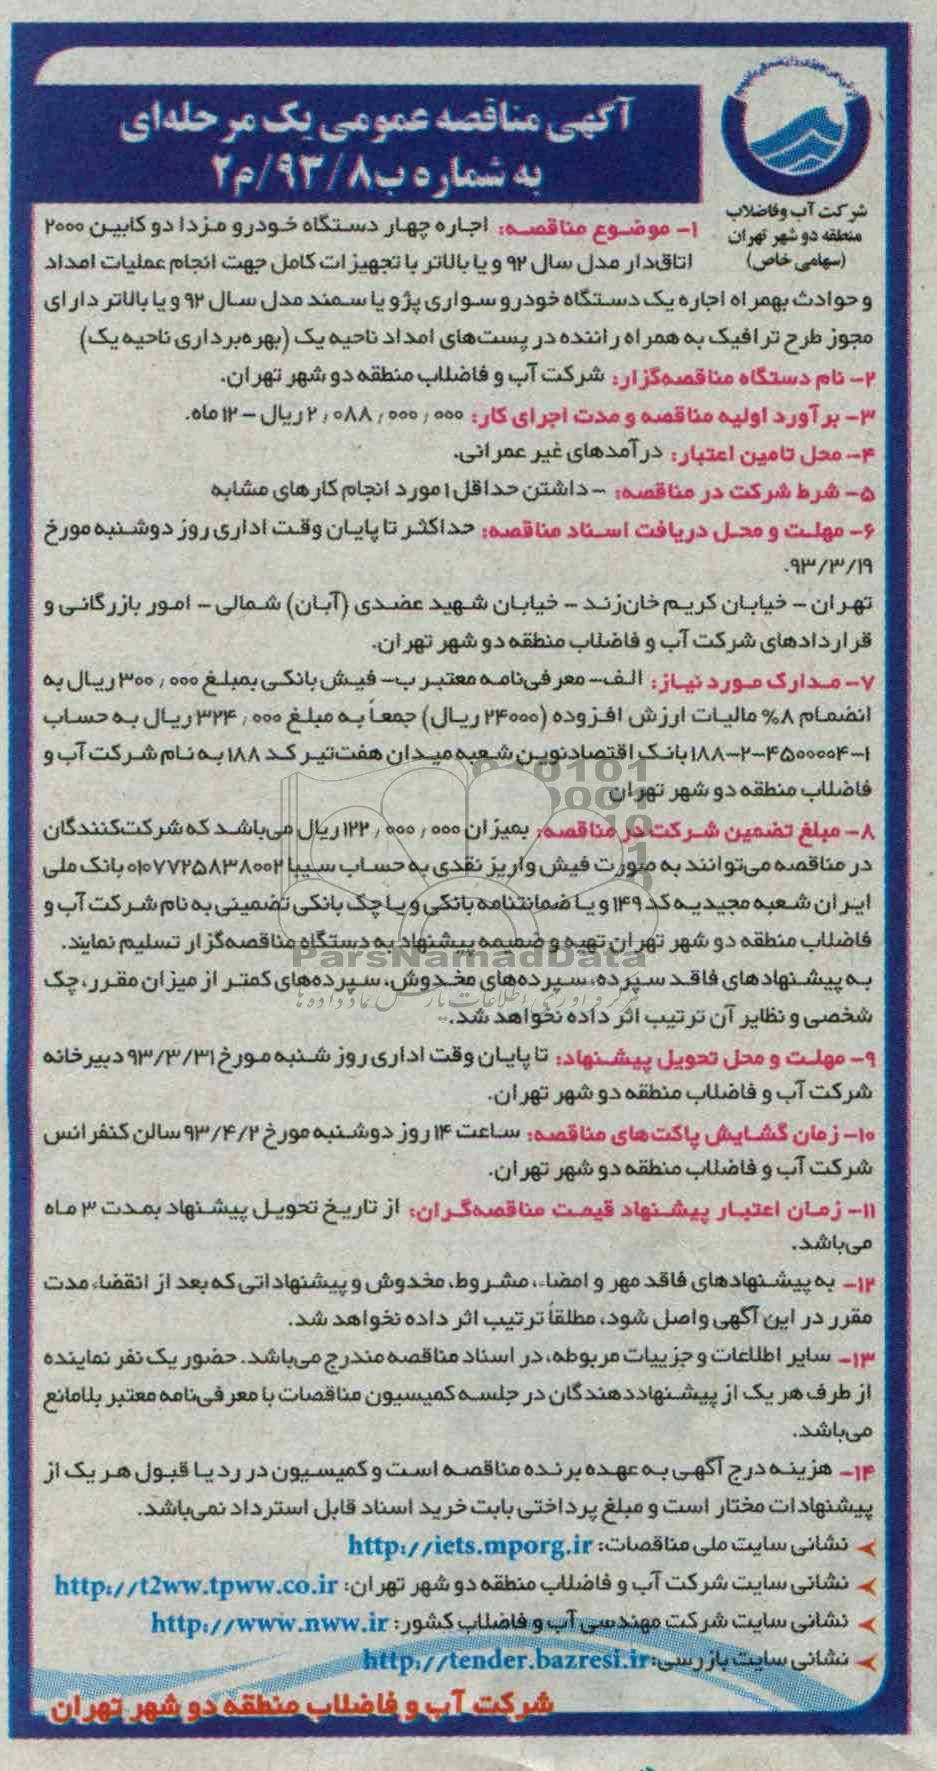 آگهی مناقصه عمومی یک مرحله‌ای
به شماره ب۸/۹۳/م۲
شرکت آب وفاضلاب
منطقه دو شهر تهران
(سهامی خاص)
۱- موضوع مناقصه: اجاره چهار دستگاه خودرو مزدا دو کابین ۲۰۰۰
اتاق‌دار مدل سال ۹۲ و یا بالاتر با تجهیزات کامل جهت انجام عملیات امداد
و حوادث بهمراه اجاره یک دستگاه خودرو سواری پژو یا سمند مدل سال ۹۲ و یا بالاتر دارای
مجوز طرح ترافیک به همراه راننده در پست‌های امداد ناحیه یک (بهره‌برداری ناحیه یک)
۲- نام دستگاه مناقصه‌گزار: شرکت آب و فاضلاب منطقه دو شهر تهران.
۳- برآورد اولیه مناقصه و مدت اجرای کار: ۲٫۰۸۸٫۰۰۰٫۰۰۰ ریال – ۱۲ ماه.
۴- محل تامین اعتبار: درآمدهای غیر عمرانی.
۵- شرط شرکت در مناقصه: -داشتن حداقل ۱ مورد انجام کارهای مشابه
۶- مهلت و محل دریافت اسناد مناقصه: حداکثر تا پایان وقت اداری روز دوشنبه مورخ
۹۳/۳/۱۹.
تهران – خیابان کریم خان‌زند – خیابان شهید عضدی (آبان) شمالی – امور بازرگانی و
قراردادهای شرکت آب و فاضلاب منطقه دو شهر تهران.
۷- مدارک مورد نیاز: الف- معرفی‌نامه معتبر ب- فیش بانکی بمبلغ ۳۰۰٫۰۰۰ ریال به
انضمام ۸% مالیات ارزش افزوده (۲۴۰۰۰ ریال) جمعاً به مبلغ ۳۲۴٫۰۰۰ ریال به حساب
۱-۴۵۰۰۰۰۴-۲-۱۸۸ بانک اقتصادنوین شعبه میدان هفت‌تیر کد ۱۸۸ به نام شرکت آب و
فاضلاب منطقه دو شهر تهران
۸- مبلغ تضمین شرکت در مناقصه: بمیزان ۱۲۲٫۰۰۰٫۰۰۰ ریال می‌باشد که شرکت‌کنندگان
در مناقصه می‌توانند به صورت فیش واریز نقدی به حساب سیبا ۰۱۰۷۷۲۵۸۳۸۰۰۲ بانک ملی
ایران شعبه مجیدیه کد ۱۴۹ و یا ضمانتنامه بانکی و یا چک بانکی تضمینی به نام شرکت آب و
فاضلاب منطقه دو شهر تهران تهیه و ضمیمه پیشنهاد به دستگاه مناقصه‌گزار تسلیم نمایند.
به پیشنهادهای فاقد سپرده، سپرده‌های مخدوش، سپرده‌های کمتر از میزان مقرر، چک
شخصی و نظایر آن ترتیب اثر داده نخواهد شد.
ParsNamadData
۹- مهلت و محل تحویل پیشنهاد: تا پایان وقت اداری روز شنبه مورخ ۹۳/۳/۳۱ دبیرخانه
شرکت آب و فاضلاب منطقه دو شهر تهران.
۱۰- زمان گشایش پاکت‌های مناقصه: ساعت ۱۴ روز دوشنبه مورخ ۹۳/۴/۲ سالن کنفرانس
شرکت آب و فاضلاب منطقه دو شهر تهران.
۱۱- زمان اعتبار پیشنهاد قیمت مناقصه‌گران: از تاریخ تحویل پیشنهاد بمدت ۳ ماه
می‌باشد.
۱۲- به پیشنهادهای فاقد مهر و امضاء، مشروط، مخدوش و پیشنهاداتی که بعد از انقضاء مدت
مقرر در این آگهی واصل شود، مطلقاً ترتیب اثر داده نخواهد شد.
۱۳- سایر اطلاعات و جزییات مربوطه، در اسناد مناقصه مندرج می‌باشد. حضور یک نفر نماینده
از طرف هر یک از پیشنهاددهندگان در جلسه کمیسیون مناقصات با معرفی‌نامه معتبر بلامانع
می‌باشد.
۱۴- هزینه درج آگهی به عهده برنده مناقصه است و کمیسیون در رد یا قبول هر یک از
پیشنهادات مختار است و مبلغ پرداختی بابت خرید اسناد قابل استرداد نمی‌باشد.
نشانی سایت ملی مناقصات: http://iets.mporg.ir
نشانی سایت شرکت آب و فاضلاب منطقه دو شهر تهران: http://t2ww.tpww.co.ir
نشانی سایت شرکت مهندسی آب و فاضلاب کشور: http://www.nww.ir
نشانی سایت بازرسی: http://tender.bazresi.ir
شرکت آب و فاضلاب منطقه دو شهر تهران